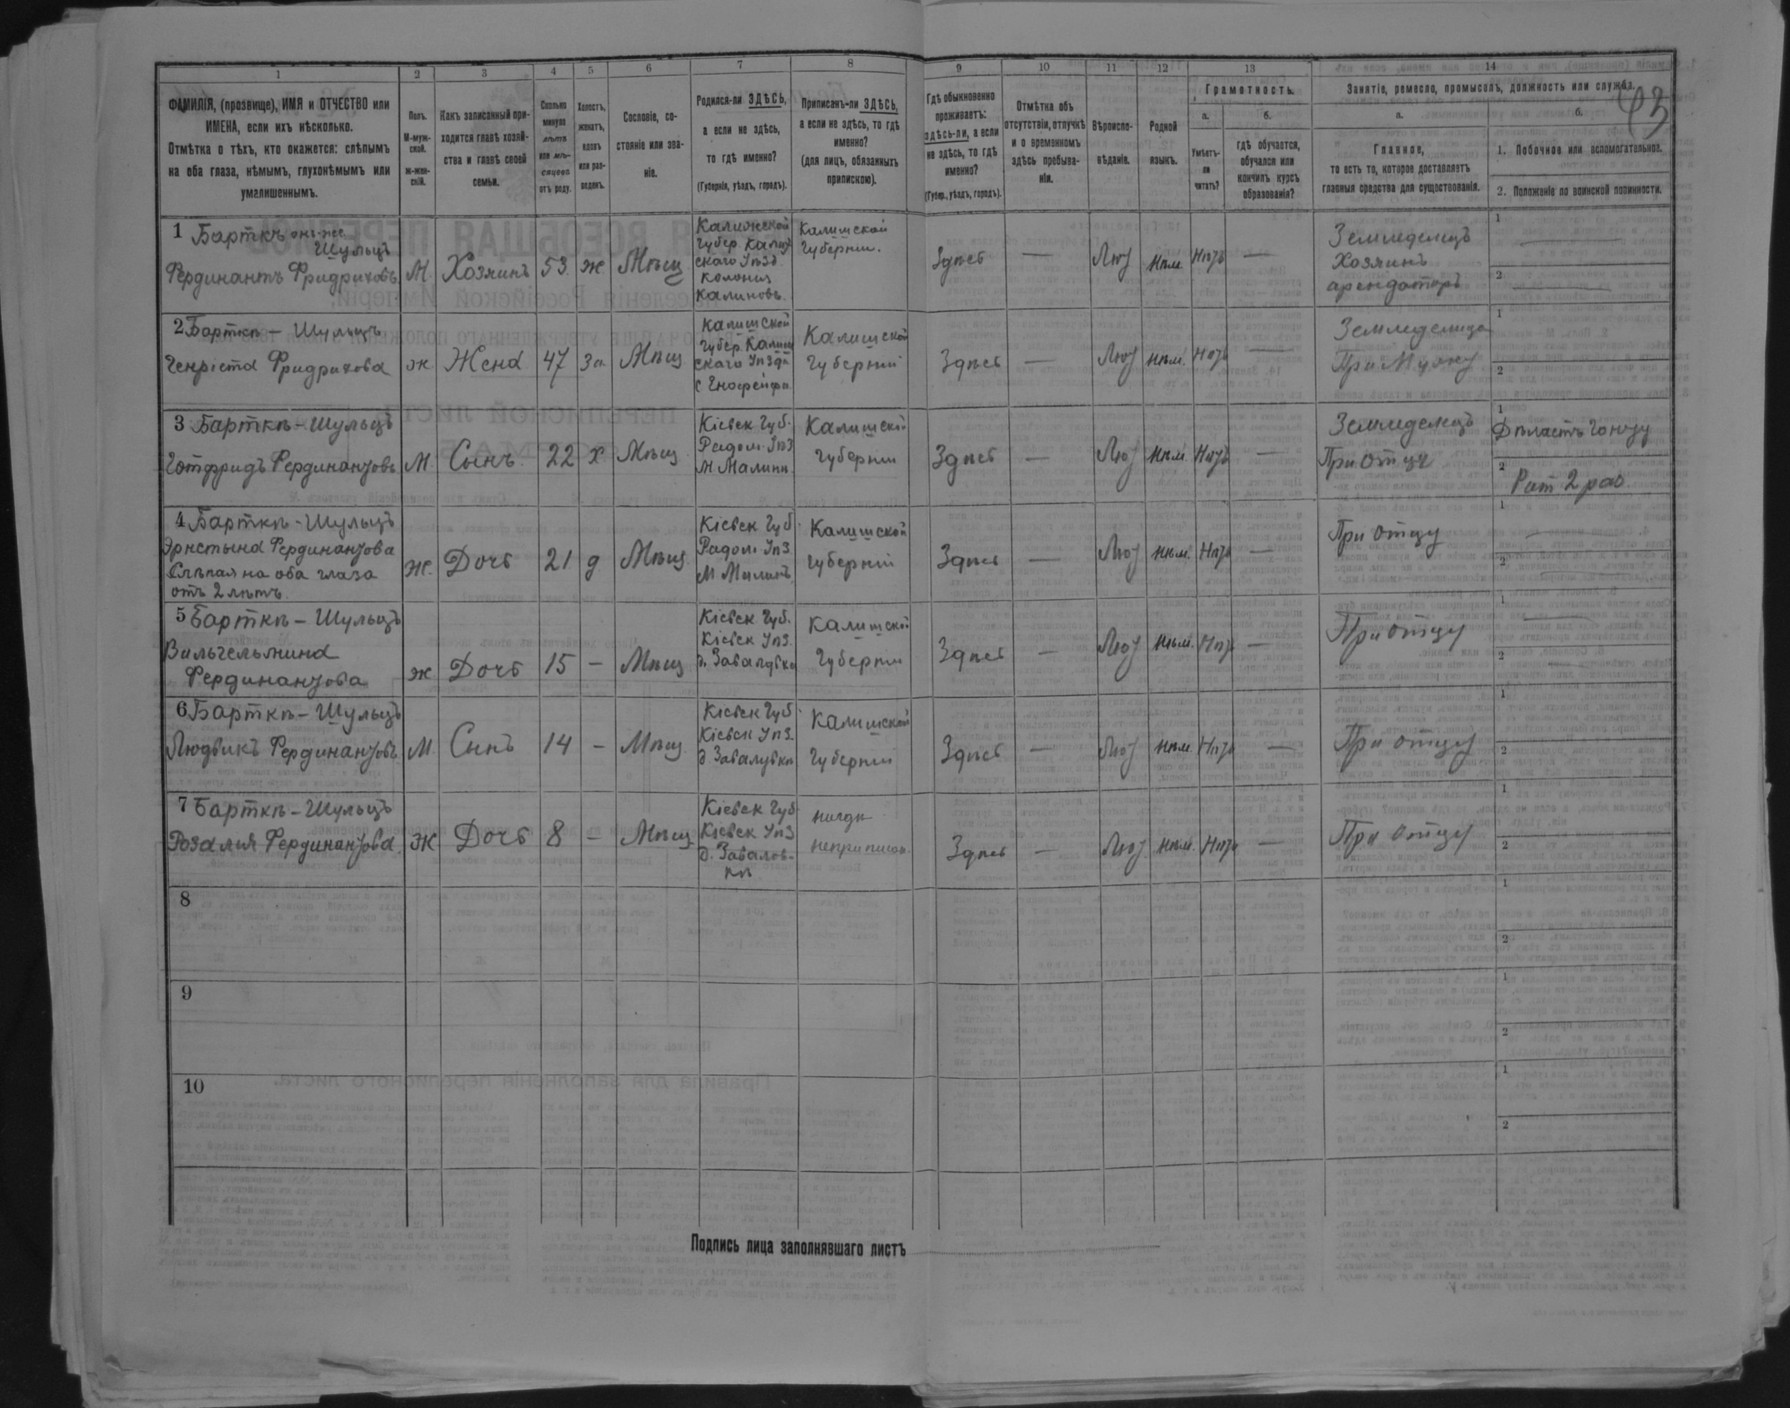 1 2 3 4 5 6 7 8 9 10 11 12 13 14
ФАМИЛІЯ, (прозвище), ИМЯ и ОТЧЕСТВО или
ИМЕНА, если ихъ нѣсколько.
Отмѣтка о тѣхъ, кто окажется: слѣпымъ
на оба глаза, нѣмымъ, глухонѣмымъ или
умалишеннымъ.
Полъ.
М-муж-
ской.
ж-жен-
скій.
Какъ записанный при-
ходится главѣ хозяй-
ства и главѣ своей
семьи.
Сколько
минуло
лѣтъ
или мѣ-
сяцевъ
отъ роду.
Холостъ,
женатъ,
вдовъ
или раз-
веденъ.
Сословіе, со-
стояніе или зва-
ніе.
Родился-ли ЗДѢСЬ,
а если не здѣсь,
то гдѣ именно?
(Губернія, уѣздъ, городъ).
Приписанъ-ли ЗДѢСЬ,
а если не здѣсь, то гдѣ
именно?
(для лицъ, обязанныхъ
припискою).
Гдѣ обыкновенно
проживаетъ:
здѣсь-ли, а если
не здѣсь, то гдѣ
именно?
(Губер., уѣздъ, городъ).
Отмѣтка объ
отсутствіи, отлучкѣ
и о временномъ
здѣсь пребыва-
ніи.
Вѣроиспо-
вѣданіе.
Родной
языкъ.
Грамотность.
а.
Умѣетъ-
ли
читать?
б.
гдѣ обучается,
обучался или
кончилъ курсъ
образованія?
Занятіе, ремесло, промыселъ, должность или служба.
а.
Главное,
то есть то, которое доставляетъ
главныя средства для существованія.
б.
1. Побочное или вспомогательное.
2. Положеніе по воинской повинности.
1 Барткъ онъ-же
Шульцъ
Фердинантъ Фридриховъ
М
Хозяинъ
53
ж
Мѣщ
Калишской
Губер. Калиш
скаго Уѣзд
колонія
Калиновъ
Калишской
Губернии.
Здѣсь
—
Лют
нѣм.
Нѣтъ
—
Земледелецъ
Хозяинъ
арендаторъ
1 —
2 —
2 Барткѣ – Шульцъ
Генріета Фридрихова
ж
Жена
47
За
Мѣщ
Калишской
Губер. Калиш
скаго Уѣзда
Калишской
Губерніи
Здѣсь
—
Лют
нѣм.
Нѣтъ
—
При Мужу
1
2
3 Барткѣ – Шульцъ
Готфридъ Фердинантовъ
М.
Сынъ
22
х
Мѣщ
Кіевск Губ.
Радом. Уѣз
М Малинъ
Калишской
Губерніи
Здѣсь
—
Лют
нѣм.
Нѣтъ
—
Земледелецъ
При Отцу
1 Дѣлаетъ Гонту
2 Рат 2 раз
4 Барткѣ – Шульцъ
Эрнстына Фердинантова
Слѣпая на оба глаза
отъ 2 лѣтъ.
ж.
Дочь
21
д
Мѣщ
Кіевск Губ.
Радом. Уѣз
М Малинъ
Калишской
Губерніи
Здѣсь
—
Лют
нѣм.
Нѣтъ
—
При отцу
1 —
2 —
5 Барткѣ – Шульцъ
Вильгельмина
Фердинантова
ж
Дочь
15
—
Мѣщ
Кіевск Губ.
Кіевск Уѣз.
Калишской
Губерніи
Здѣсь
—
Лют
нѣм.
Нѣт
—
При отцу
1 —
2 —
6 Барткѣ – Шульцъ
Людвикъ Фердинантовъ
М
Сынъ
14
—
Мѣщ
Кіевск Губ
Кіевск Уѣз.
Калишской
Губерніи
Здѣсь
—
Лют
нѣм.
Нѣтъ
—
При отцу
1
2
7 Барткѣ – Шульцъ
Розалія Фердинантова.
ж
Дочь
8
—
Мѣщ
Кіевск Губ
Кіевск Уѣз
нигдѣ
неприписан.
Здѣсь
—
Лют
нѣм.
Нѣтъ
—
При отцу
1
2
8
1
2
9
1
2
10
1
2
Подпись лица заполнявшаго листъ